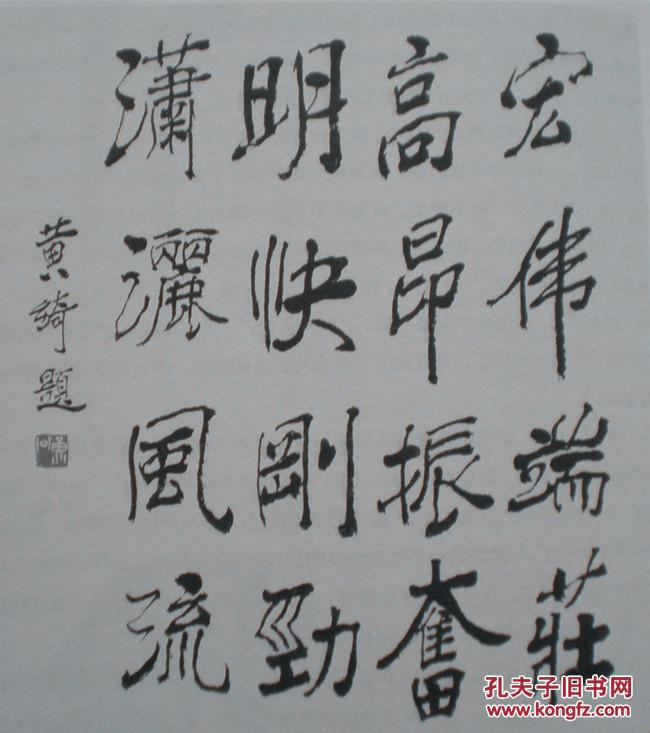 宏伟端莊
高昂振奮
明快剛勁
瀟灑風流
黄绮題
孔夫子旧书网
www.kongfz.com